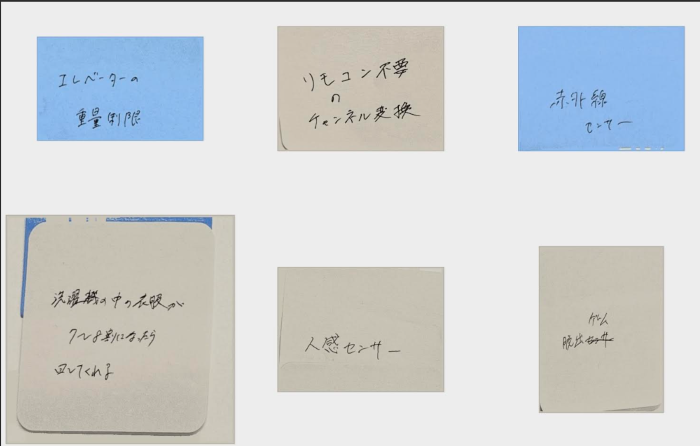 エレベーターの
重量制限
リモコン不要
の
チャンネル変換
赤外線
センサー
洗濯機の中の衣服が
7~8割になったら
回してくれる
人感センサー
ゲーム
脱出